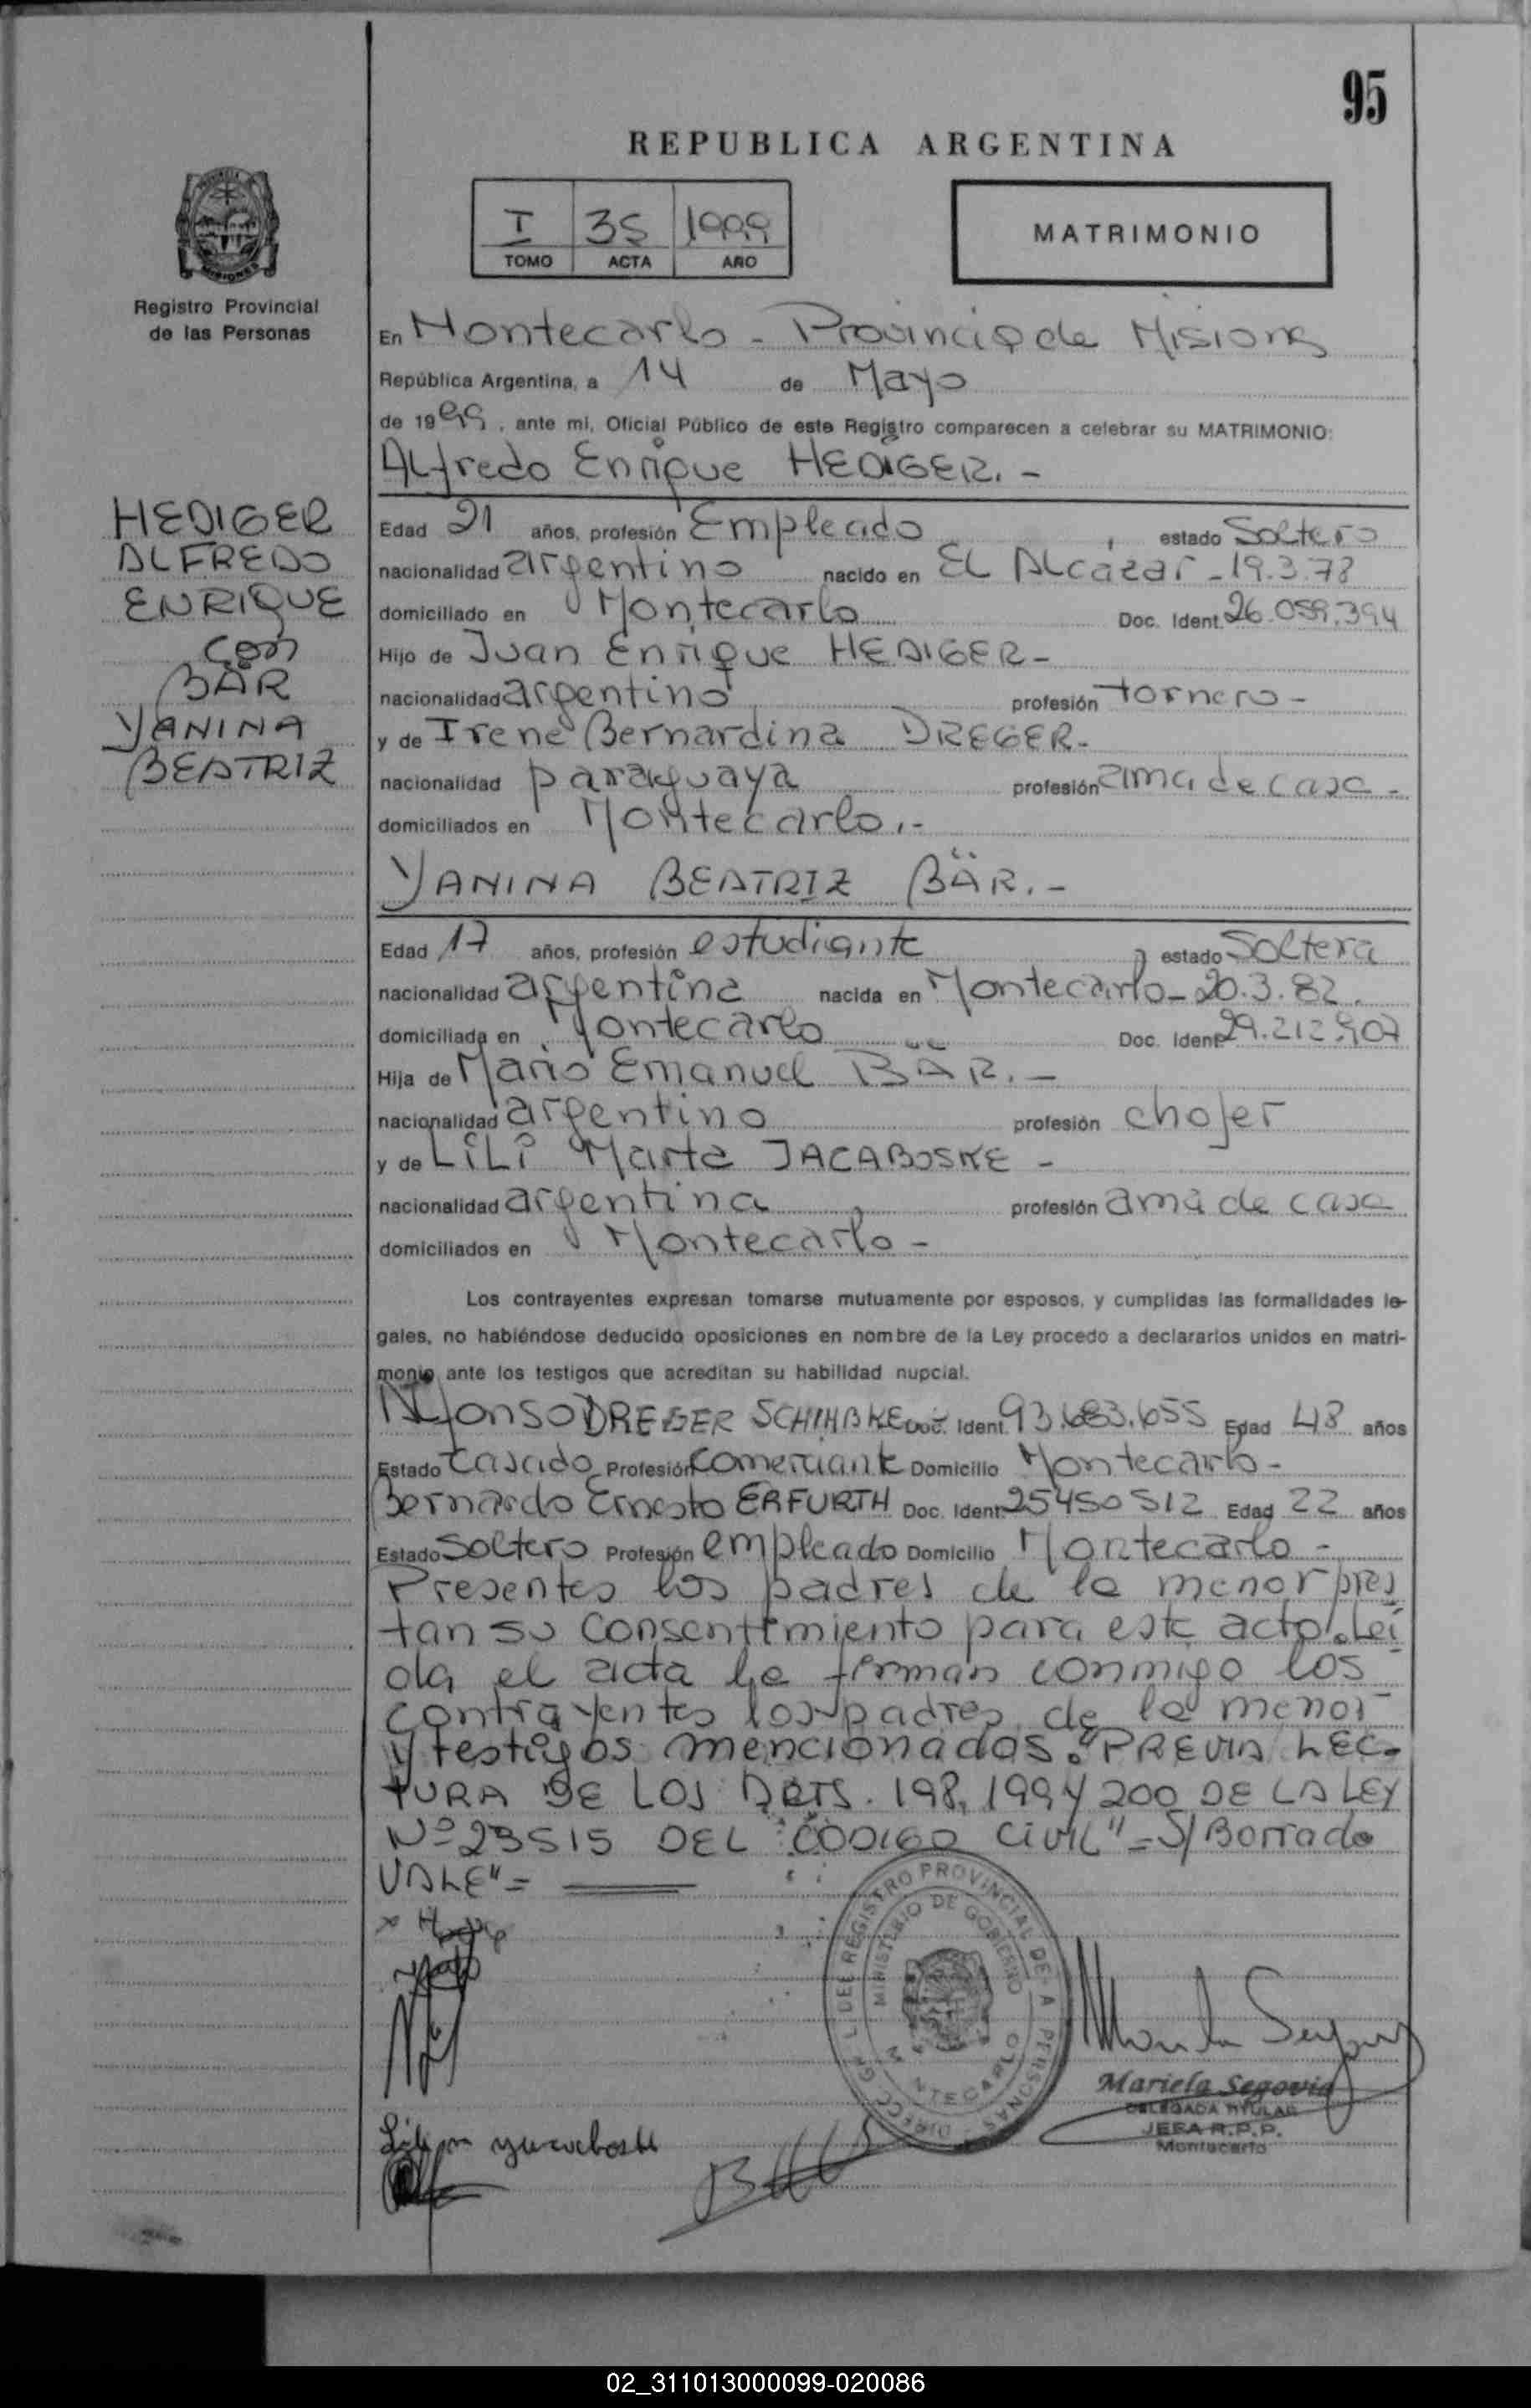 95
REPUBLICA ARGENTINA
I 35 1999
TOMO ACTA AÑO
MATRIMONIO
Registro Provincial
de las Personas
HEDIGER
ALFREDO
ENRIQUE
con
BÄR
YANINA
BEATRIZ
En Montecarlo - Provincia de Misiones
República Argentina, a 14 de Mayo
de 1999, ante mi, Oficial Público de este Registro comparecen a celebrar su MATRIMONIO:
Alfredo Enrique HEDIGER. -
Edad 21 años, profesión Empleado, estado Soltero
nacionalidad argentino nacido en El Alcazar - 19.3.78
domiciliado en Montecarlo Doc. Ident. 26.059.394
Hijo de Juan Enrique HEDIGER -
nacionalidad argentino profesión tornero -
y de Irene Bernardina DREGER -
nacionalidad paraguaya profesión ama de casa -
domiciliados en Montecarlo. -
YANINA BEATRIZ BÄR. -
Edad 17 años, profesión estudiante, estado Soltera
nacionalidad argentina nacida en Montecarlo - 20.3.82.
domiciliada en Montecarlo Doc. Ident. 29.212.907
Hija de Mario Emanuel BÄR. -
nacionalidad argentino profesión chofer
y de Lili Marta JACABOSKE -
nacionalidad argentina profesión ama de casa
domiciliados en Montecarlo -
Los contrayentes expresan tomarse mutuamente por esposos, y cumplidas las formalidades le-
gales, no habiéndose deducido oposiciones en nombre de la Ley procedo a declararlos unidos en matri-
monio ante los testigos que acreditan su habilidad nupcial.
Alfonso DREGER SCHIHBKE Doc. Ident. 93.683.655 Edad 48 años
Estado Casado Profesión Comerciante Domicilio Montecarlo -
Bernardo Ernesto ERFURTH Doc. Ident. 25450512 Edad 22 años
Estado Soltero Profesión empleado Domicilio Montecarlo -
Presentes los padres de la menor pres
tan su consentimiento para este acto. Leí
da el acta la firman conmigo los
contrayentes los padres de la menor
y testigos mencionados. "PREVIA LEC-
TURA DE LOS ARTS. 198, 199 y 200 DE LA LEY
Nº 23515 DEL CODIGO CIVIL" = S/Borrado
VALE" =
DIRECC. GRAL. DEL REGISTRO PROVINCIAL DE LA PERSONAS
MINISTERIO DE GOBIERNO
MONTECARLO
Mariela Segovia
DELEGADA TITULAR
JEFA R.P.P.
Montecarlo
02_311013000099-020086